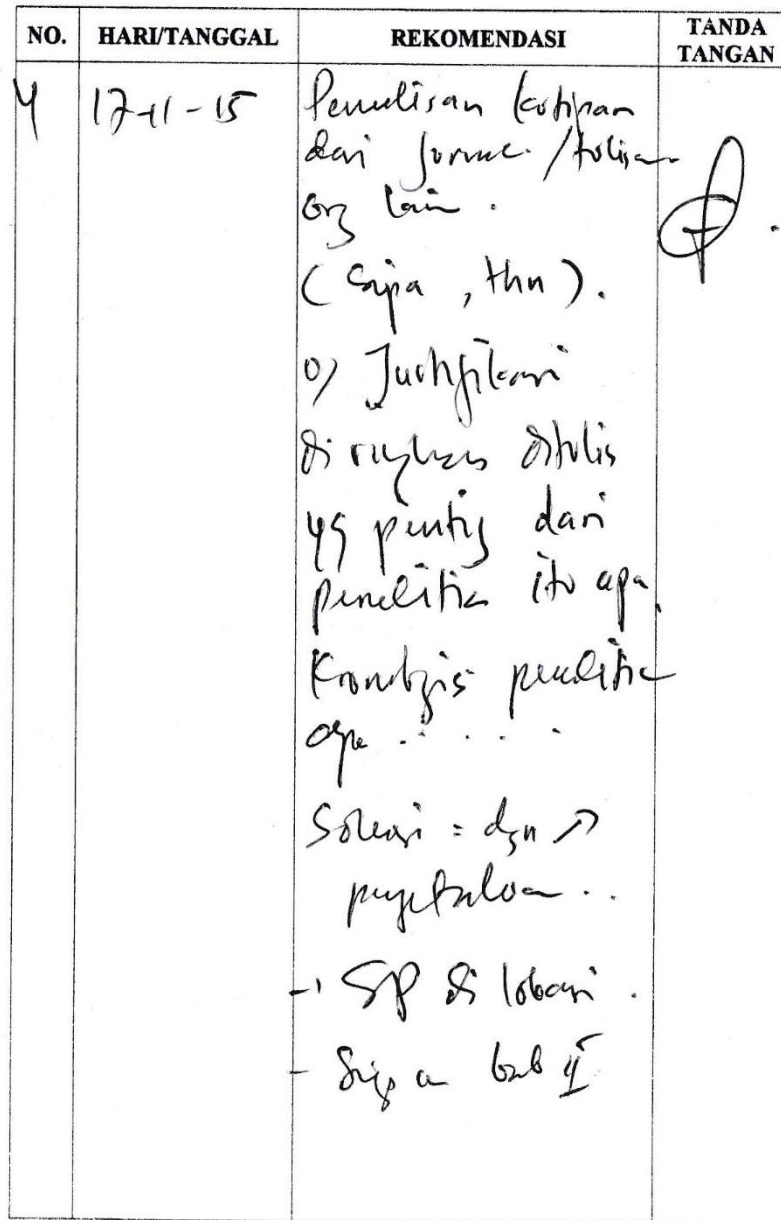 NO. HARI/TANGGAL REKOMENDASI TANDA TANGAN
4 17-11-15 Penulisan kutipan
dari jurnal /tulisan
org lain.
( Siapa , thn ).
o) Justifikasi
di ringkas ditulis
yg penting dari
penelitian itu apa
Kronologis penelitian
apa . . . . .
Solusi = dgn ↗
pengetahuan ..
- SP di lokasi .
- Siapkan bab II